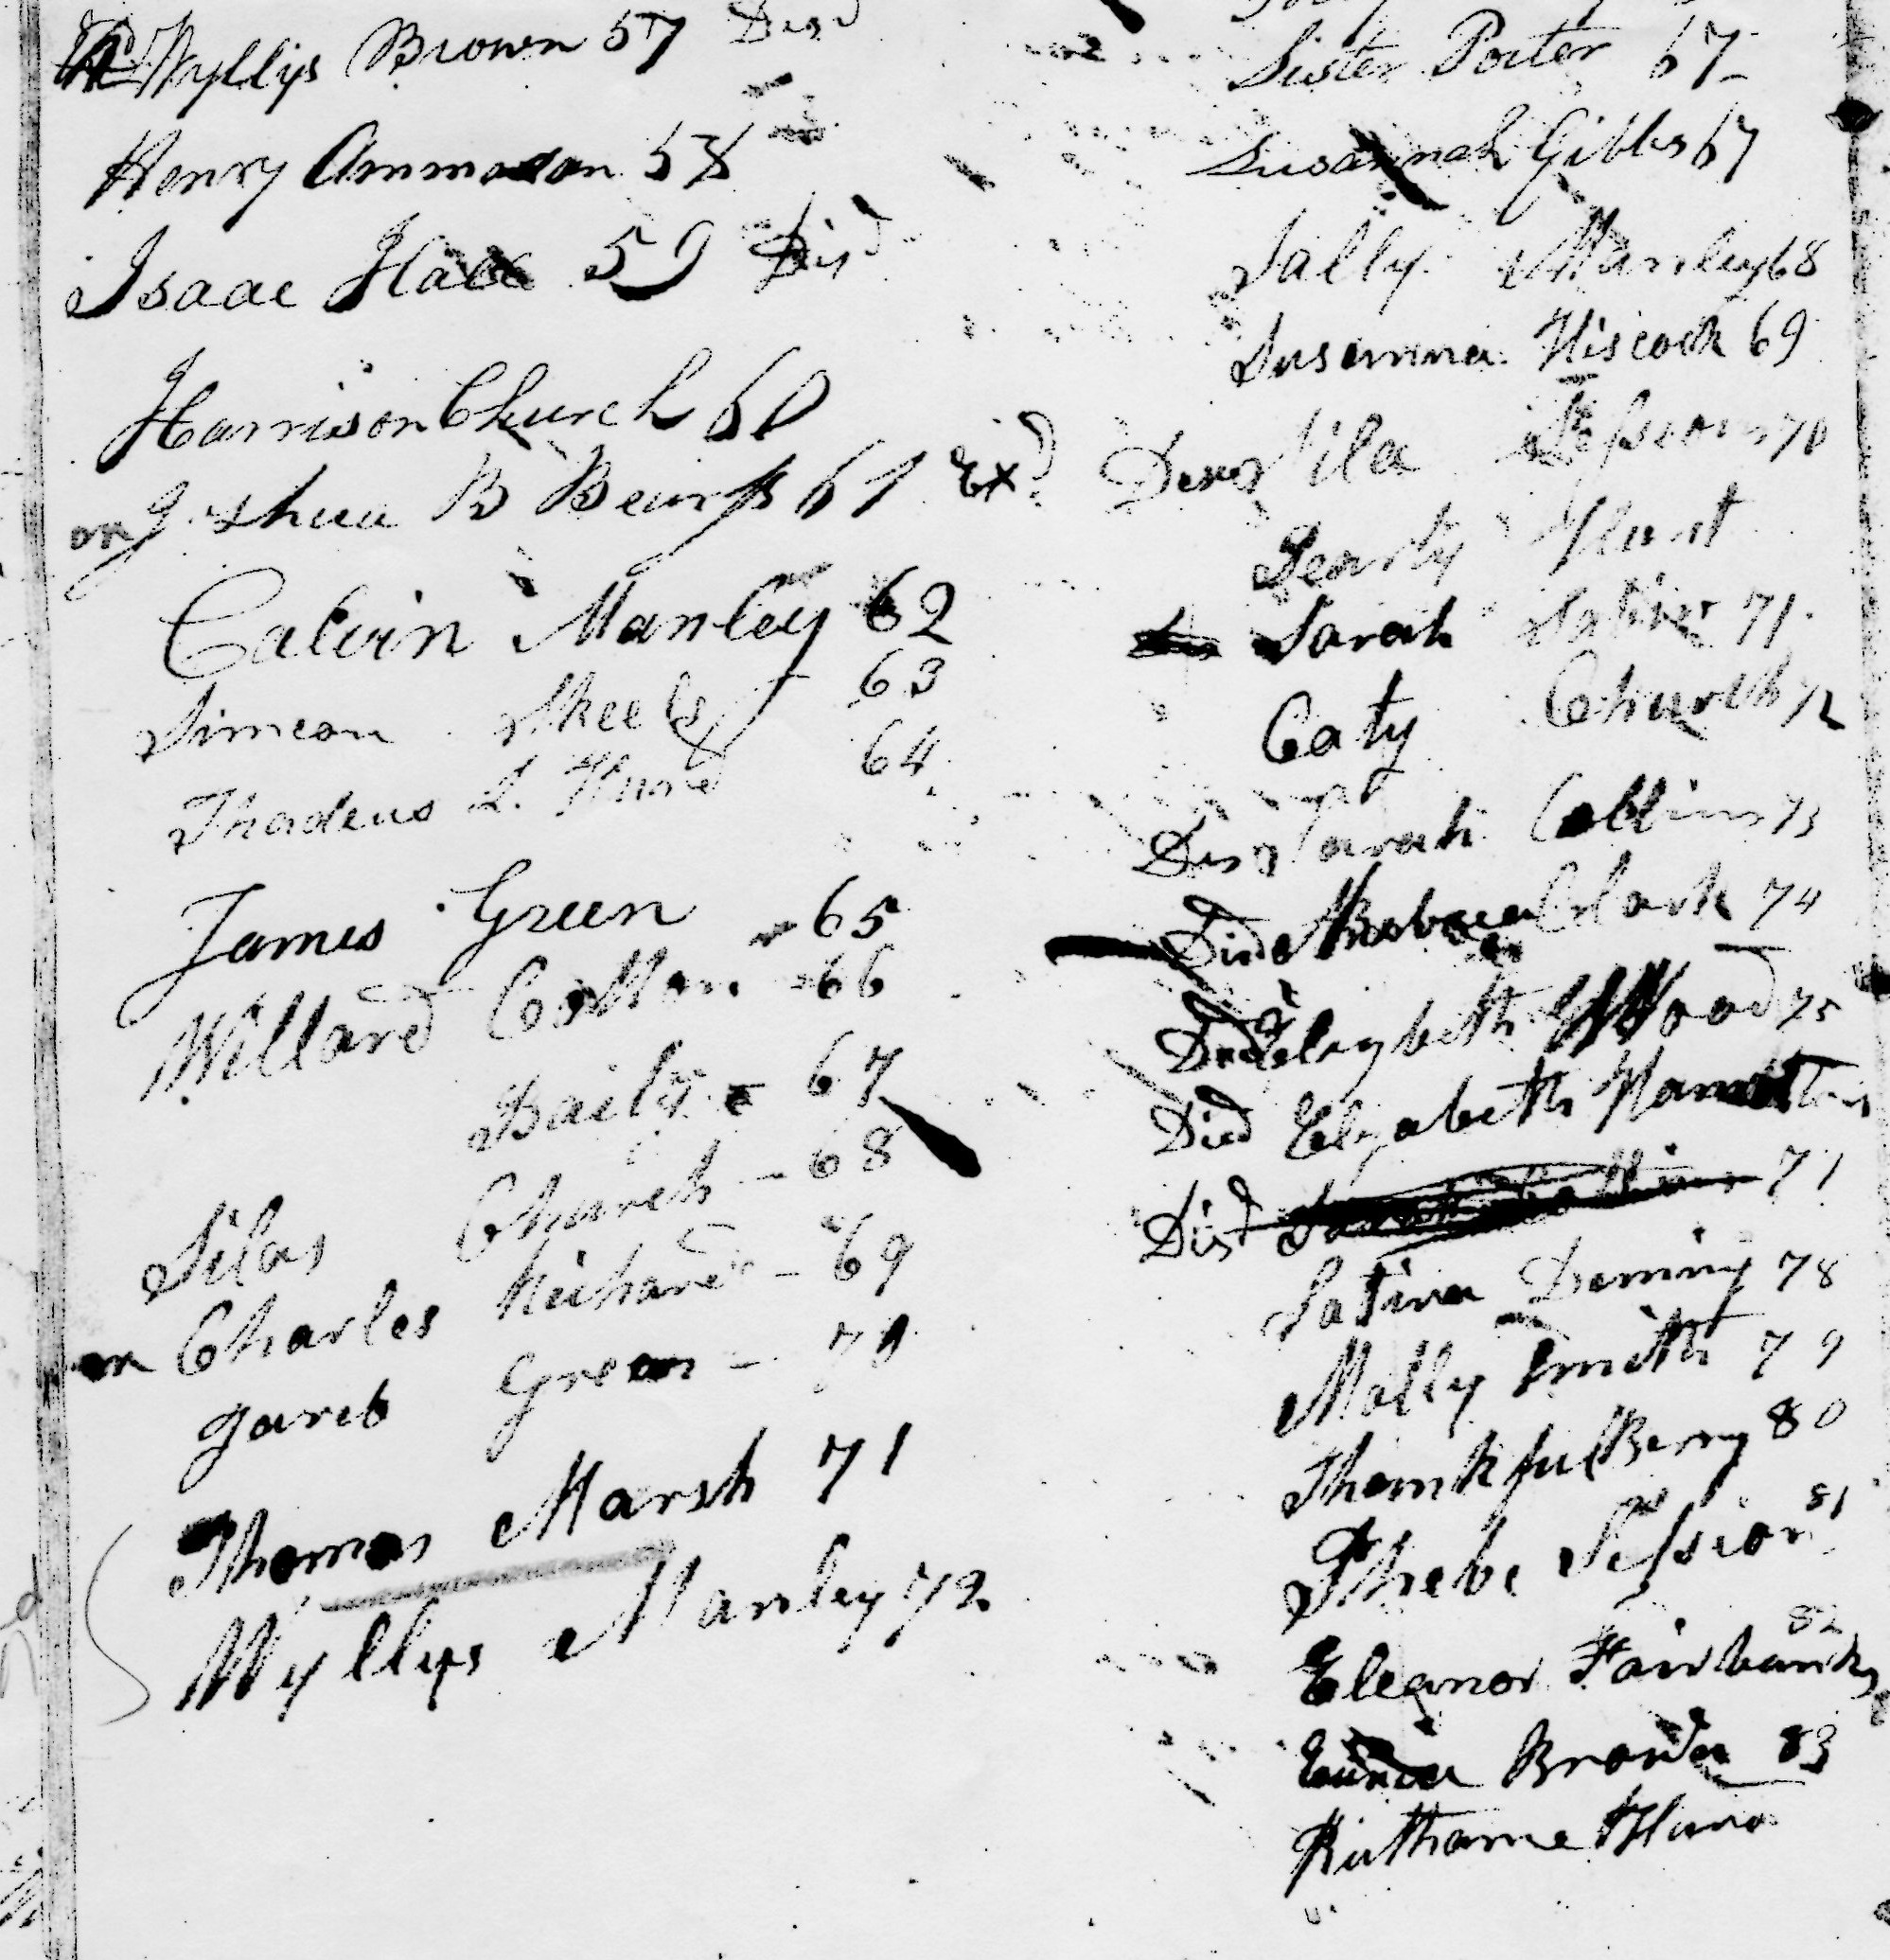 Wyllys Brown 57 Disd
Henry Ammadon 58
Isaac Hall 59 Disd
Harrison Church 60
Joshua B Bearss 61 Exd
Calvin Manley 62
Simeon Skeels 63
Thadeus L. Hurd 64
James Green 65
Willard Cotton 66
Baily 67
Silas Church - 68
Charles Richard - 69
Jareb Green - 70
Thomas Marsh 71
Wyllys Manley 72
Sister Porter 67
Susannah Gibbs 67
Sally Manley 68
Susanna Hiscock 69
Sila Sessions 70
Hurd
Sarah 71
Caty Church 72
Sarah Collins 73
Died Clark 74
Wood 75
Died Elizabeth
Disd 77
Latina Deming 78
Molly Smith 79
Thankful Berry 80
Phebe Session 81
Eleanor Fairbanks 82
Eunice Brown 83
Ruthame Hurd